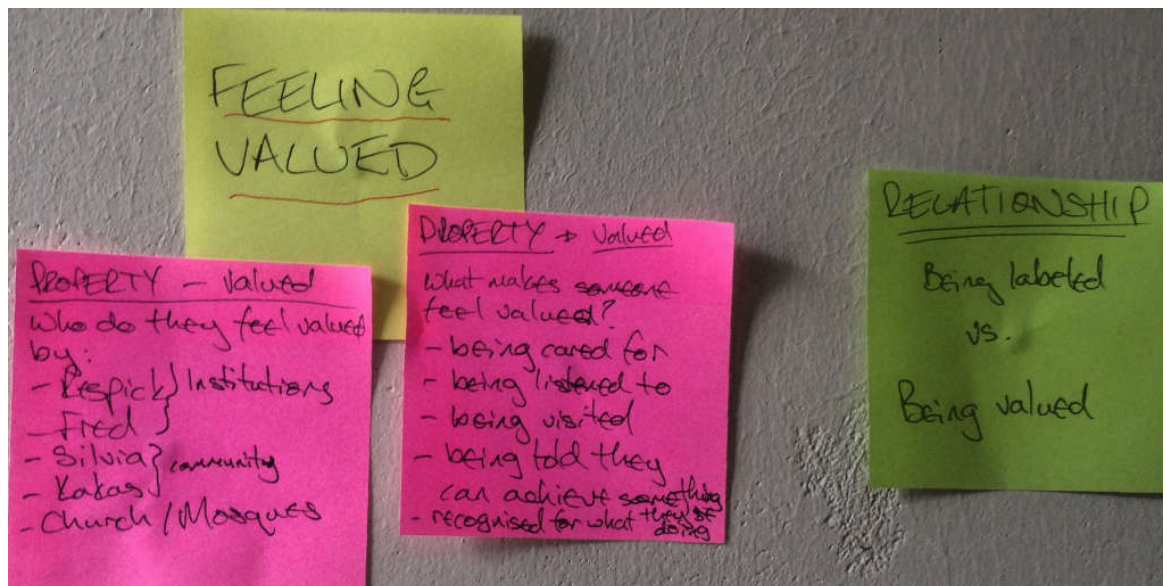 FEELING
VALUED
PROPERTY - Valued
Who do they feel valued
by:
- Respick } Institutions
- Fred
- Silvia } community
- Kakas
- Church / Mosques
PROPERTY → Valued
What makes someone
feel valued?
- being cared for
- being listened to
- being visited
- being told they
can achieve something
- recognised for what they're
doing
RELATIONSHIP
Being labeled
vs.
Being valued